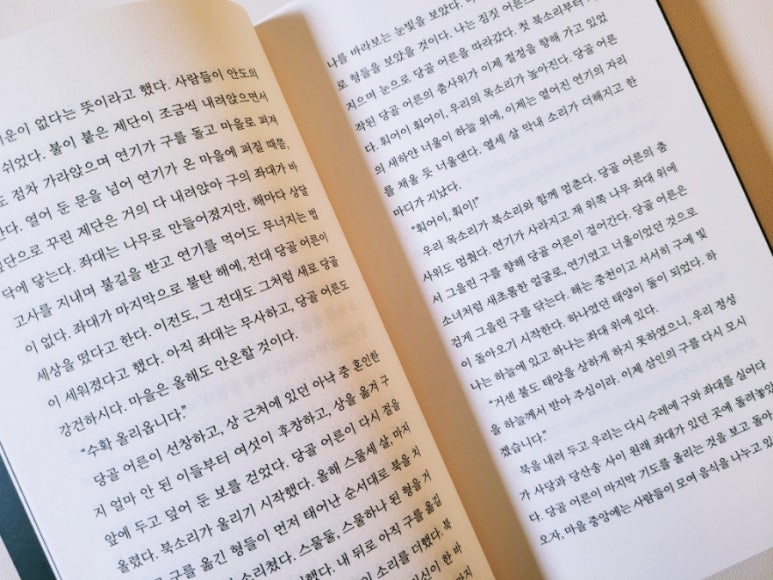 기운이 없다는 뜻이라고 했다. 사람들이 안도의
쉬었다. 불이 붙은 제단이 조금씩 내려앉으면서
도 점차 가라앉으며 연기가 구를 돌고 마을로 퍼져
간다. 열어 둔 문을 넘어 연기가 온 마을에 퍼질 때쯤,
단으로 꾸린 제단은 거의 다 내려앉아 구의 좌대가 바
닥에 닿는다. 좌대는 나무로 만들어졌지만, 해마다 상달
고사를 지내며 불길을 받고 연기를 먹어도 무너지는 법
이 없다. 좌대가 마지막으로 불탄 해에, 전대 당골 어른이
세상을 떴다고 한다. 이전도, 그 전대도. 그처럼 새로 당골
이 세워졌다고 했다. 아직 좌대는 무사하고, 당골 어른도
강건하시다. 마을은 올해도 안온할 것이다.
“수확 올리옵니다.”
당골 어른이 선창하고, 상 근처에 있던 아낙 중 혼인한
지 얼마 안 된 이들부터 여섯이 후창하고, 상을 옮겨 구
앞에 두고 덮어 둔 보를 걷었다. 당골 어른이 다시 절을
올렸다. 북소리가 울리기 시작했다. 올해 스물세 살, 마지
구를 옮긴 형들이 먼저 태어난 순서대로 북을 치
소리쳤다. 스물둘, 스물하나 된 형을 거
했다. 내 뒤로 아직 구를 옮길
이 소리를 더했다. 북
한 바
나를 바라보는 눈빛을 보았다.
로 형들을 보았을 것이다. 나는 짐짓 어른스
지으며 눈으로 당골 어른을 따라갔다. 첫 북소리부터
작된 당골 어른의 춤사위가 이제 절정을 향해 가고 있었
다. 훠어이 훠어이, 우리의 목소리가 높아진다. 당골 어른
의 새하얀 너울이 하늘 위에, 이제는 옅어진 연기의 자리
를 채울 듯 너울댄다. 열세 살 막내 소리가 더해지고 한
마디가 지났다.
“훠어이, 훠이!”
우리 목소리가 북소리와 함께 멈춘다. 당골 어른의 춤
사위도 멈췄다. 연기가 사라지고 재 위쪽 나무 좌대 위에
서 그을린 구를 향해 당골 어른이 걸어간다. 당골 어른은
소녀처럼 새초롬한 얼굴로, 연기였고 너울이었던 것으로
검게 그을린 구를 닦는다. 해는 중천이고 서서히 구에 빛
이 돌아오기 시작한다. 하나였던 태양이 둘이 되었다. 하
나는 하늘에 있고 하나는 좌대 위에 있다.
“거센 불도 태양을 상하게 하지 못하였으니, 우리 정성
을 하늘께서 받아 주심이라. 이제 삼인의 구를 다시 모시
겠습니다.”
북을 내려 두고 우리는 다시 수레에 구와 좌대를 실어다
가 사당과 당산송 사이 원래 좌대가 있던 곳에 돌려놓았
다. 당골 어른이 마지막 기도를 올리는 것을 보고 돌아
오자, 마을 중앙에는 사람들이 모여 음식을 나누고 있